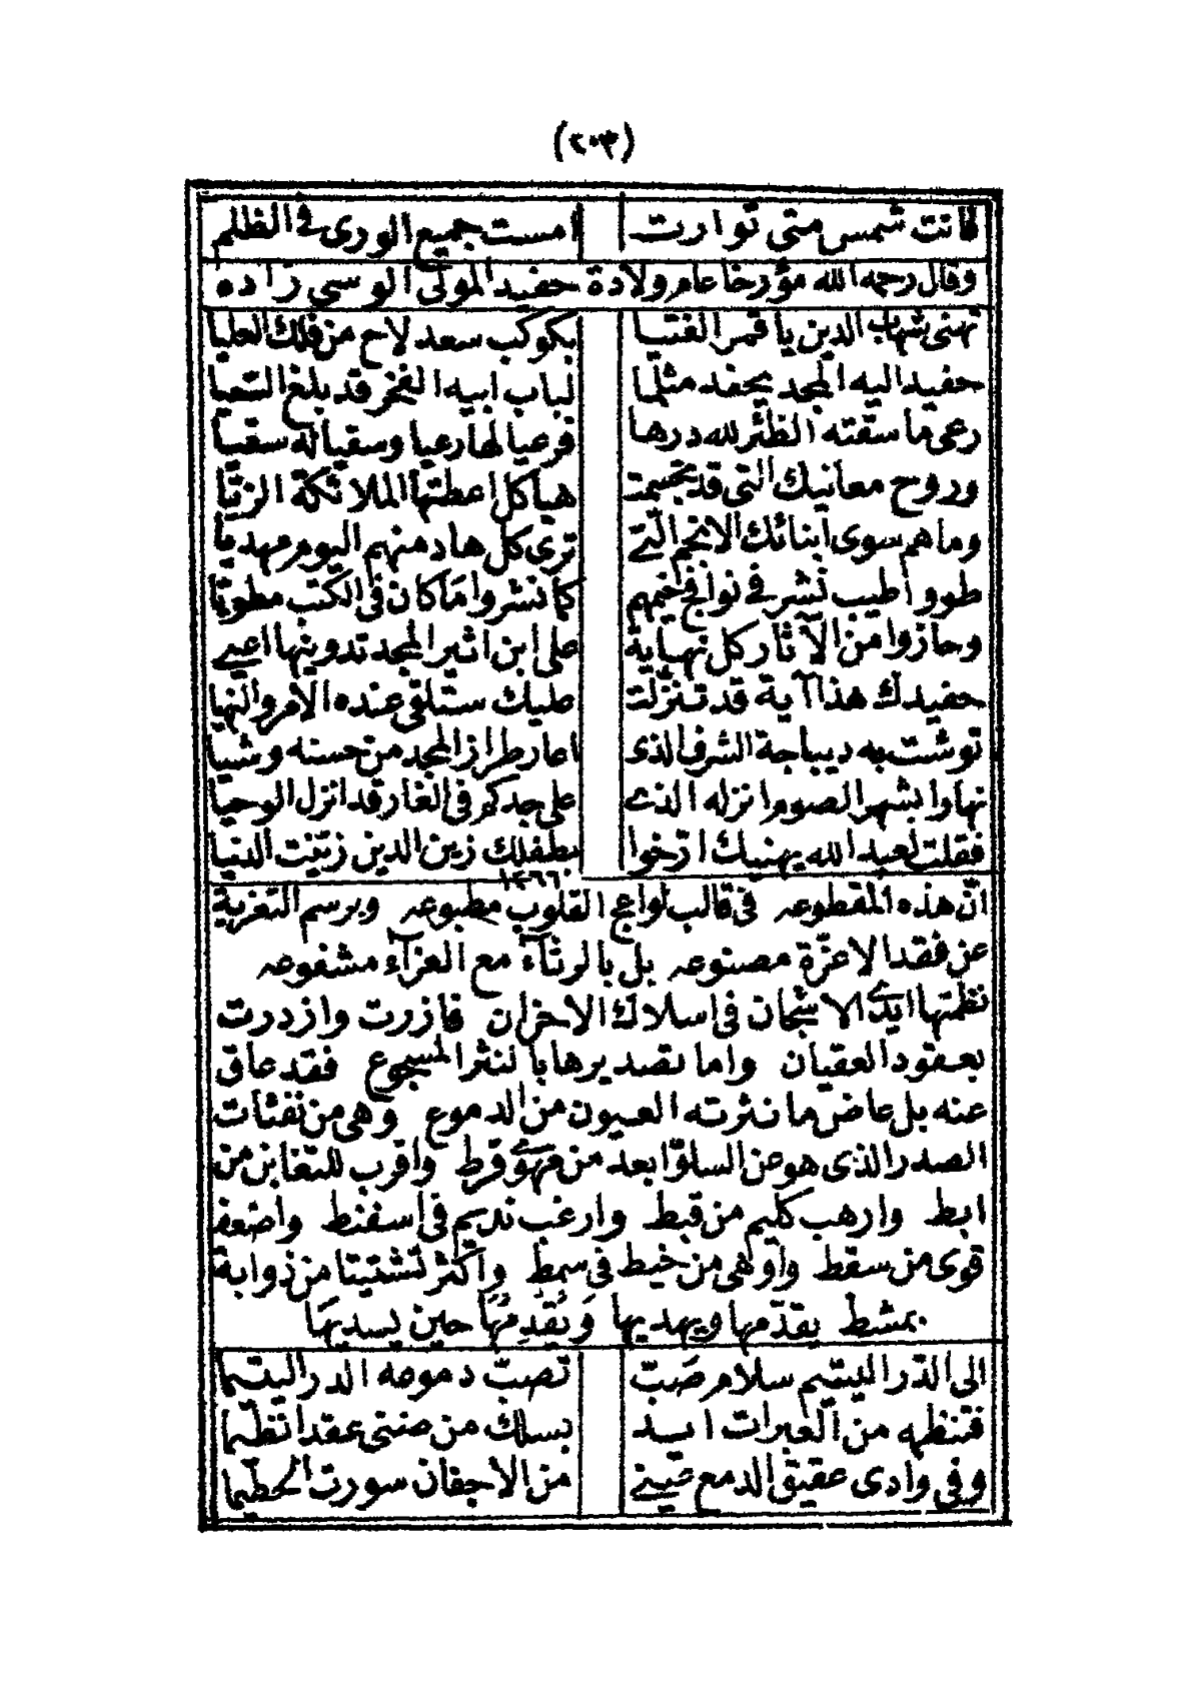 (٢٠٣)
فانت شمس متى توارت امست جميع الورى في الظلم
وقال رحمه الله مؤرخا عام ولادة حفيد المولى الوسي زاده
تهنى شهاب الدين يا قمر الفتيا بكوكب سعد لاح من فلك العليا
حفيد اليه المجد يحفد مثلما لباب ابيه الفخر قد بلغ السعيا
رعى ما سقته الظئر لله درها فرعيا لها رعيا وسقيا له سقيا
وروح معانيك التي قد تجسمت هياكل اعطتها الملائكة الزيّا
وما هم سوى ابنائك الانجم التي ترى كل هاد منهم اليوم مهديا
طووا طيب نشر في نوافج خيمهم كما نشروا ما كان في الكتب مطويّا
وحازوا من الآثار كل نهاية على ابن اثير المجد تدوينها اعيى
حفيدك هذا آية قد تنزلت عليك ستلقى عنده الامر والنهيا
توشت به ديباجة الشرف الذي اعار طراز المجد من حسنه وشيا
نهارا بشهر الصوم انزله الذي على جدكم في الغار قد انزل الوحيا
فقلت لعبد الله يهنيك ارّخوا بطفلك زين الدين زينت الدنيا
١٢٦٦
انّ هذه المقطوعه في قالب لواعج القلوب مطبوعه وبرسم التعزية
عن فقد الاعزّة مصنوعه بل بالرثاء مع العزاء مشفوعه
نظمتها ايدي الاشجان في اسلاك الاحزان فازرت وازدرت
بعقود العقيان واما تصديرها بالنثر المسجوع فقد عاق
عنه بل عاض ما نثرته العيون من الدموع وهي من نفثات
الصدر الذي هو عن السلوّ ابعد من مهوى قرط واقرب للتغابن من
ابط وارهب كليم من قبط وارغب نديم في اسفنط واضعف
قوى من سقط واوهى من خيط في سمط واكثر تشتيتا من ذوابة
بمشط يقدّمها ويهديها وَنُقَدِمُهَا حين يسديها
الى الدّر اليتيم سلام صَبّ تصبّ دموعه الدر اليتيما
فتنظمه من العبرات ايد بسلك من ضنى عقدا نظيما
وفي وادي عقيق الدمع عيني من الاجفان سورت الحطيما